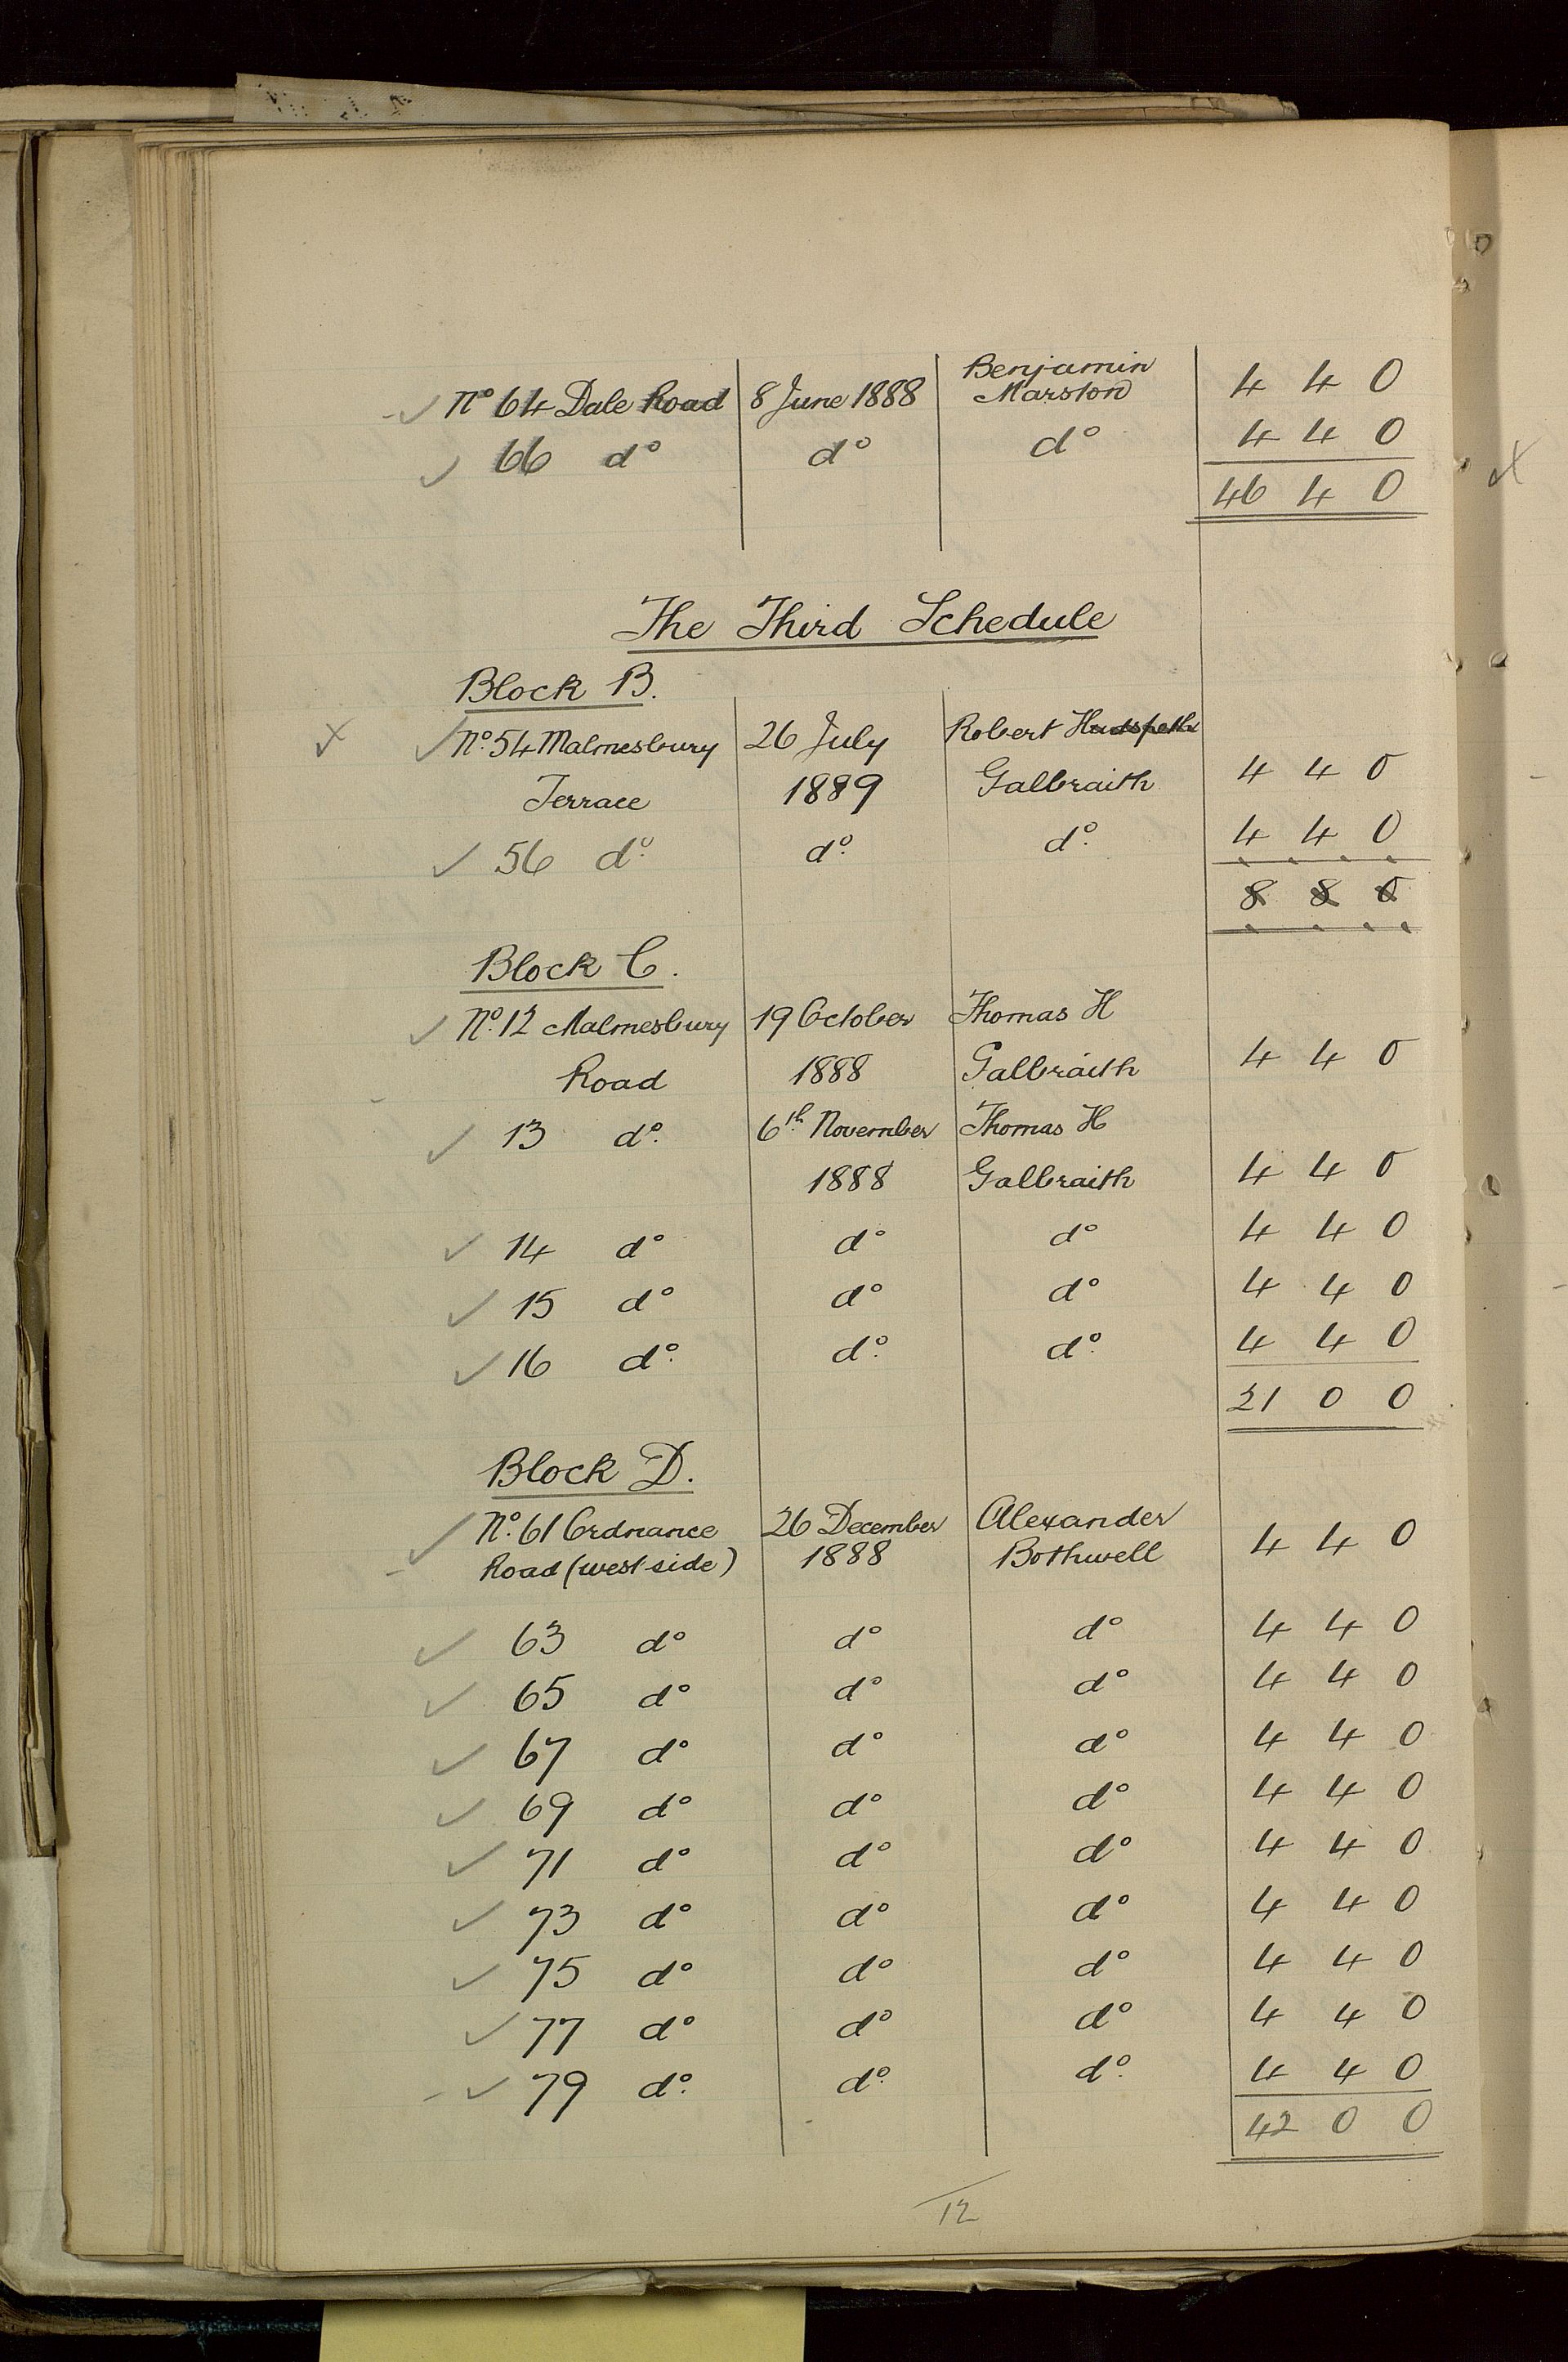 Benjamin
No 64 Dale Road 8 June 1888 Marston 4 4 0
66 do do do 4 4 0
46 4 0
The Third Schedule
Block B.
No. 54 Malmesbury 26 July Robert Hudspeth
Terrace 1889 Galbraith 4 4 0
56 do. do. do. 4 4 0
8 8 0
Block C.
No. 12 Malmesbury 19 October Thomas H
Road 1888 Galbraith 4 4 0
13 do. 6th November Thomas H
1888 Galbraith 4 4 0
14 do do do 4 4 0
15 do do do 4 4 0
16 do. do. do. 4 4 0
21 0 0
Block D.
No. 61 Ordnance 26 December Alexander
Road (west side) 1888 Bothwell 4 4 0
63 do do do 4 4 0
65 do do do 4 4 0
67 do do do 4 4 0
69 do do do 4 4 0
71 do do do 4 4 0
73 do do do 4 4 0
75 do do do 4 4 0
77 do do do 4 4 0
79 do. do. do. 4 4 0
42 0 0
12